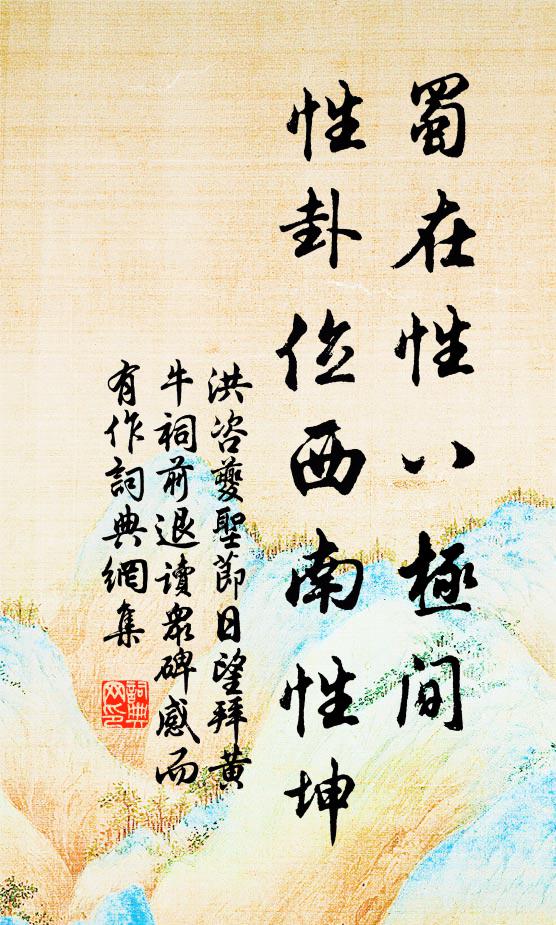 蜀在性八極間
性卦位西南性坤
洪咨夔聖節日望拜黃
牛祠前退讀眾碑感而
有作詞典網集
詞典
网印